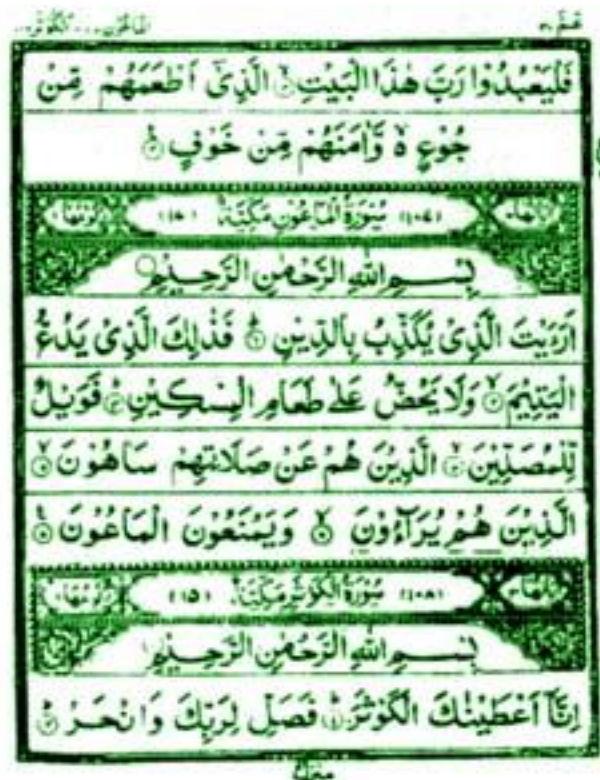 عمّ ٣٠ الماعون ... الكوثر ...
فَلْيَعْبُدُوْا رَبَّ هٰذَا الْبَيْتِ ۙ الَّذِیْٓ اَطْعَمَهُمْ مِّنْ
جُوْعٍ ۵ وَّاٰمَنَهُمْ مِّنْ خَوْفٍ
(١٠٧) سُوْرَةُ الْمَاعُوْنِ مَكِّيَّةٌ (١٧)
بِسْمِ اللهِ الرَّحْمٰنِ الرَّحِيْمِ
اَرَءَيْتَ الَّذِیْ يُكَذِّبُ بِالدِّيْنِ فَذٰلِكَ الَّذِیْ يَدُعُّ
الْيَتِيْمَ وَلَا يَحُضُّ عَلٰى طَعَامِ الْمِسْكِيْنِ فَوَيْلٌ
لِّلْمُصَلِّيْنَ الَّذِيْنَ هُمْ عَنْ صَلَاتِهِمْ سَاهُوْنَ
الَّذِيْنَ هُمْ يُرَآءُوْنَ وَيَمْنَعُوْنَ الْمَاعُوْنَ
(١٠٨) سُوْرَةُ الْكَوْثَرِ مَكِّيَّةٌ (١٥)
بِسْمِ اللهِ الرَّحْمٰنِ الرَّحِيْمِ
اِنَّآ اَعْطَيْنٰكَ الْكَوْثَرَ فَصَلِّ لِرَبِّكَ وَانْحَرْ